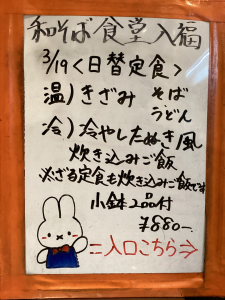 和そば食堂入福
3/19〈日替定食〉
温)きざみ そば
うどん
冷)冷やしたぬき風
炊き込みご飯
※ざる定食も炊き込みご飯です
小鉢2品付
¥880-
=入口こちら⇒